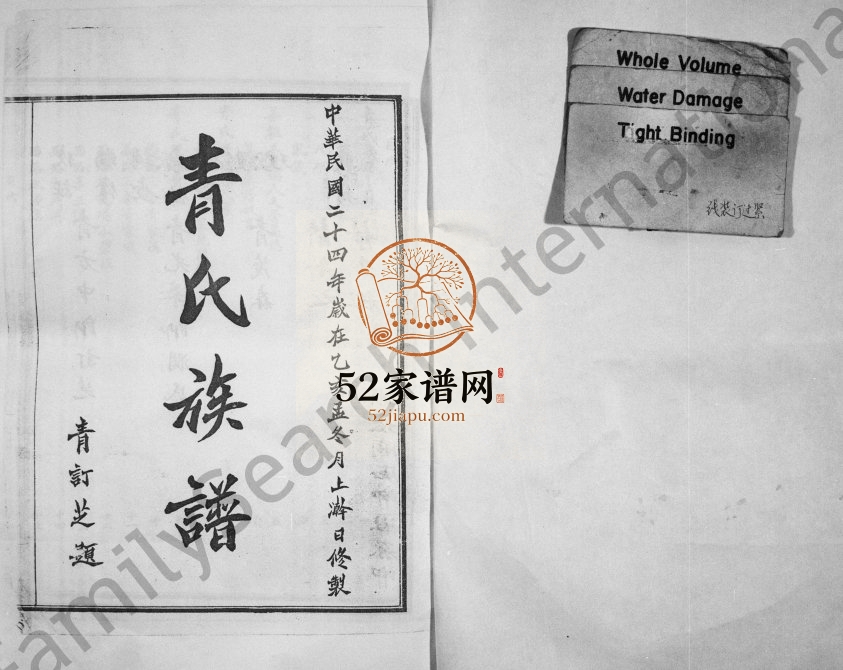 中華民國二十四年歲在乙亥孟冬月上澣日修製
青氏族譜
青訂芝題
Whole Volume
Water Damage
Tight Binding
线装订过紧
52家谱网
52jiapu.com
FamilySearch International